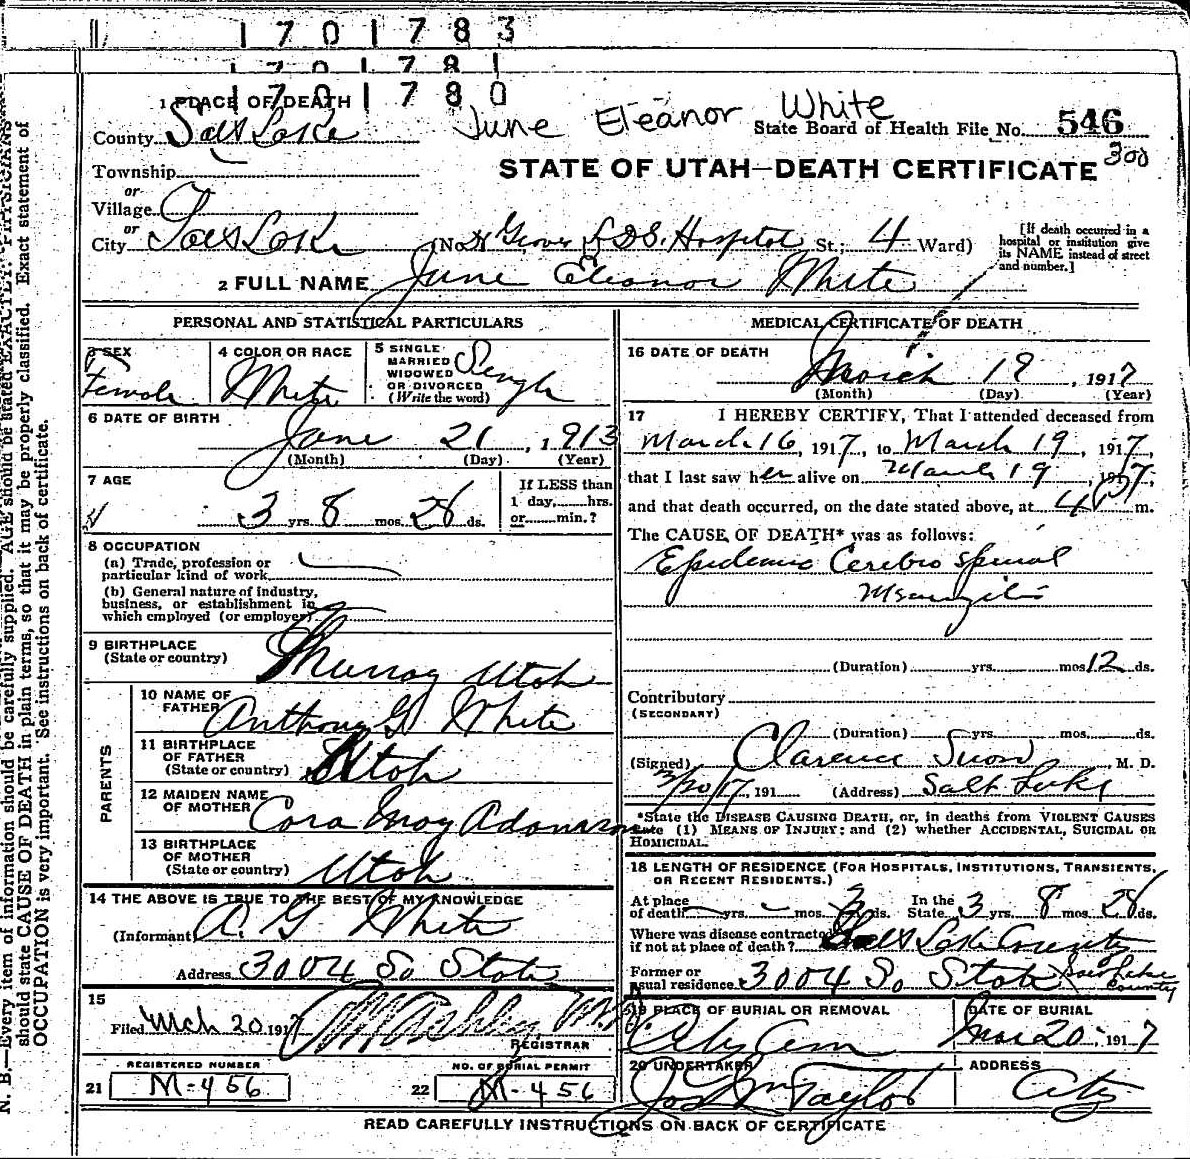 1701783
1701781
1701780
1 PLACE OF DEATH
June Eleanor White
County Salt Lake
State Board of Health File No. 546
300
Township
STATE OF UTAH—DEATH CERTIFICATE
or
Village
or
City Salt Lake (No. Groves L.D.S. Hospital St.; 4 Ward)
[If death occurred in a hospital or institution give its NAME instead of street and number.]
2 FULL NAME June Eleanor White
PERSONAL AND STATISTICAL PARTICULARS
3 SEX Female
4 COLOR OR RACE White
5 SINGLE MARRIED WIDOWED OR DIVORCED (Write the word) Single
6 DATE OF BIRTH
June 21, 1913
(Month) (Day) (Year)
7 AGE
3 yrs. 8 mos. 28 ds.
If LESS than 1 day, hrs. or min.?
8 OCCUPATION
(a) Trade, profession or particular kind of work
(b) General nature of industry, business, or establishment in which employed (or employer)
9 BIRTHPLACE
(State or country) Murray Utah
PARENTS
10 NAME OF FATHER Anthony G White
11 BIRTHPLACE OF FATHER (State or country) Utah
12 MAIDEN NAME OF MOTHER Cora May Adamson
13 BIRTHPLACE OF MOTHER (State or country) Utah
14 THE ABOVE IS TRUE TO THE BEST OF MY KNOWLEDGE
(Informant) A. G White
Address 3004 So State
15
Filed Mch 20 1917
REGISTRAR
REGISTERED NUMBER
21 M-456
NO. OF BURIAL PERMIT
22 M-456
MEDICAL CERTIFICATE OF DEATH
16 DATE OF DEATH
March 19, 1917
(Month) (Day) (Year)
17 I HEREBY CERTIFY, That I attended deceased from
March 16, 1917, to March 19, 1917,
that I last saw her alive on March 19, 1917,
and that death occurred, on the date stated above, at 4 P m.
The CAUSE OF DEATH* was as follows:
Epidemic Cerebro Spinal
Meningitis
(Duration) yrs. mos. 12 ds.
Contributory
(SECONDARY)
(Duration) yrs. mos. ds.
(Signed) Clarence Snow, M. D.
3/20/17, 191 (Address) Salt Lake
*State the DISEASE CAUSING DEATH, or, in deaths from VIOLENT CAUSES
state (1) MEANS OF INJURY; and (2) whether ACCIDENTAL, SUICIDAL OR
HOMICIDAL.
18 LENGTH OF RESIDENCE (FOR HOSPITALS, INSTITUTIONS, TRANSIENTS, OR RECENT RESIDENTS.)
At place of death yrs. mos. 3 ds. In the State 3 yrs. 8 mos. 28 ds.
Where was disease contracted if not at place of death? Salt Lake County
Former or usual residence 3004 So State Salt Lake County
19 PLACE OF BURIAL OR REMOVAL
City Cem
DATE OF BURIAL
Mar 20, 1917
20 UNDERTAKER
Jos Wm Taylor
ADDRESS
City
READ CAREFULLY INSTRUCTIONS ON BACK OF CERTIFICATE
N. B.—Every item of information should be carefully supplied. AGE should be stated EXACTLY. PHYSICIANS
should state CAUSE OF DEATH in plain terms, so that it may be properly classified. Exact statement of
OCCUPATION is very important. See instructions on back of certificate.